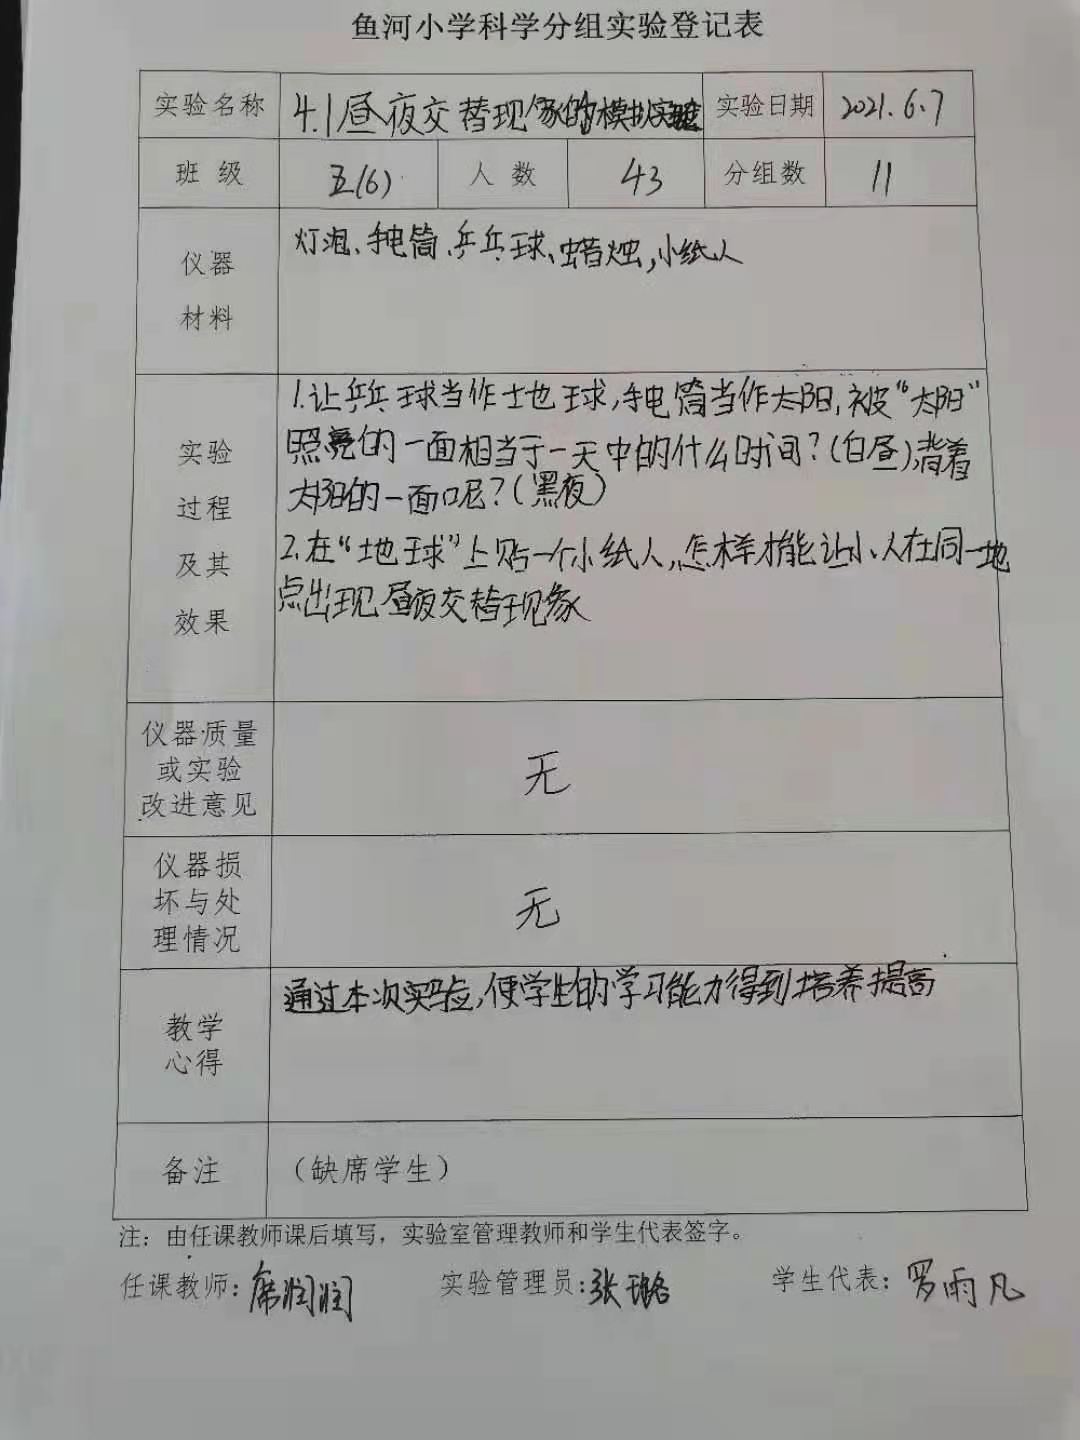 鱼河小学科学分组实验登记表
实验名称 4.1昼夜交替现象的模拟实验 实验日期 2021.6.7
班级 五(6) 人数 43 分组数 11
仪器
材料
灯泡、手电筒、乒乓球、蜡烛,小纸人
实验
过程
及其
效果
1.让乒乓球当作地球,手电筒当作太阳,被“太阳”
照亮的一面相当于一天中的什么时间?(白昼),背着
太阳的一面呢?(黑夜)
2.在“地球”上贴一个小纸人,怎样才能让小人在同一地
点出现昼夜交替现象
仪器质量
或实验
改进意见
无
仪器损
坏与处
理情况
无
教学
心得
通过本次实验,使学生的学习能力得到培养提高
备注 (缺席学生)
注：由任课教师课后填写，实验室管理教师和学生代表签字。
任课教师:席润润 实验管理员:张璐 学生代表:罗雨凡